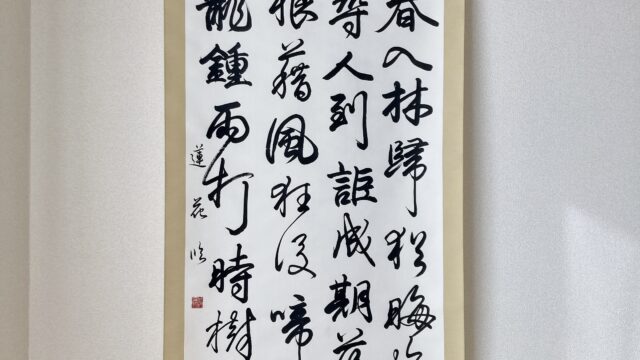 春入林歸猶晦
尋人到詎成期
狼藉風狂後啼
龍鍾雨打時樹
蓮花臨